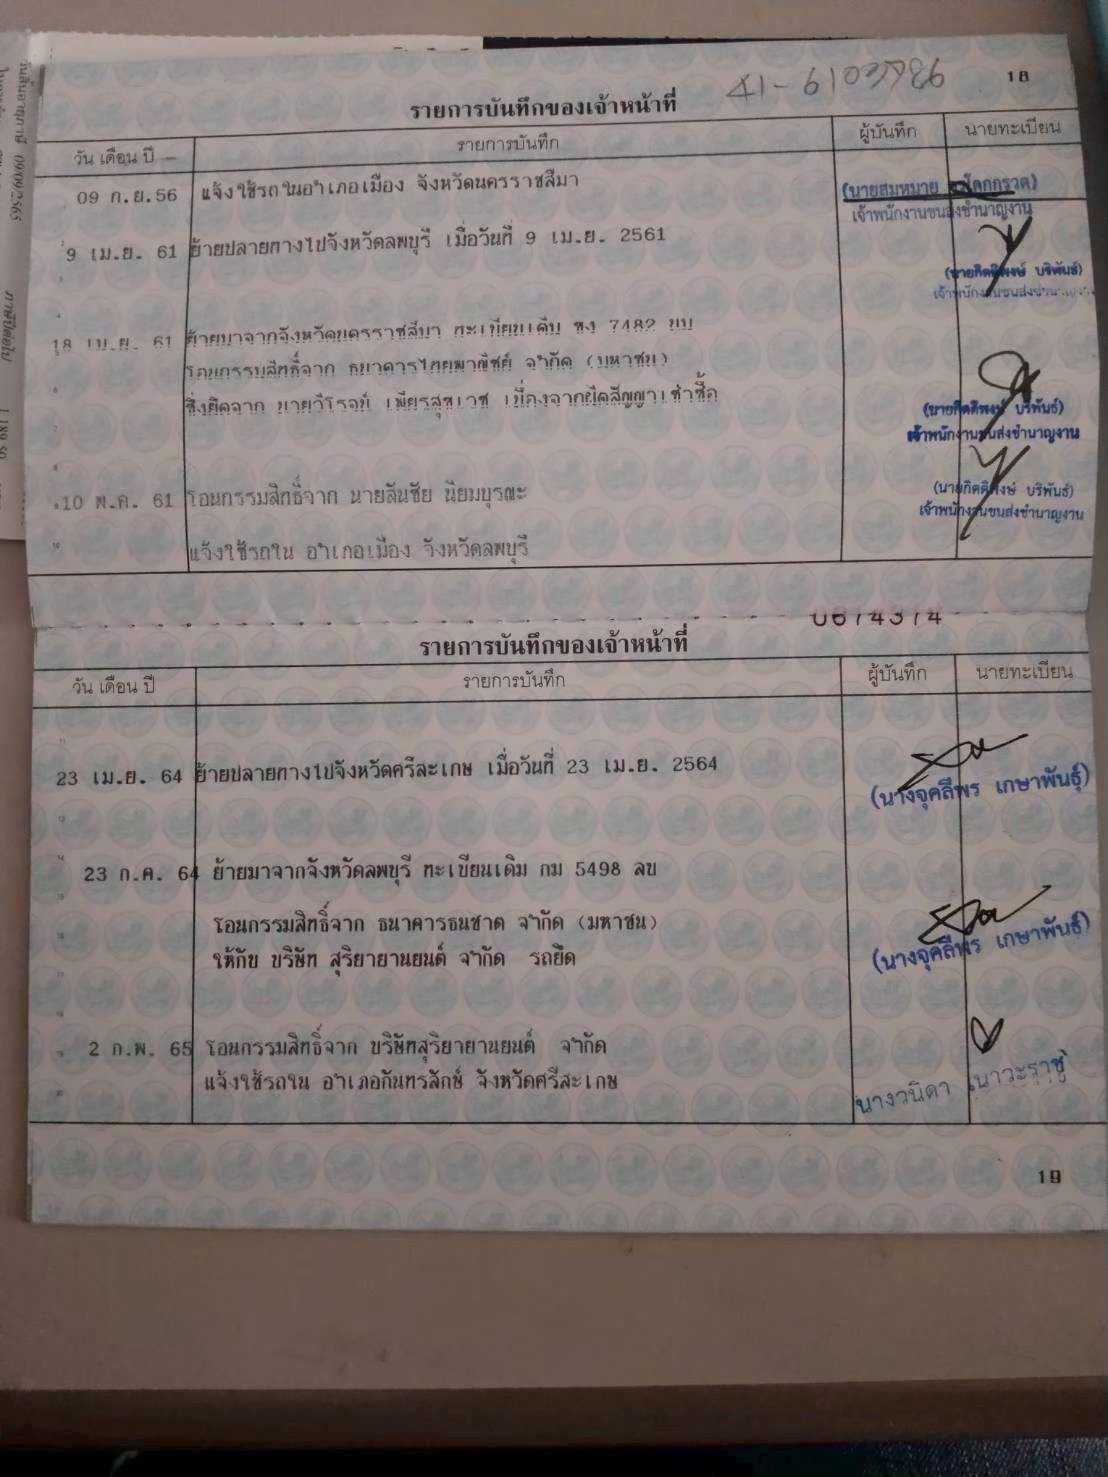 18
รายการบันทึกของเจ้าหน้าที่
วัน เดือน ปี รายการบันทึก ผู้บันทึก นายทะเบียน
09 ก.ย.56 แจ้งใช้รถในอำเภอเมือง จังหวัดนครราชสีมา (นายสมหมาย โคกกรวด)
เจ้าพนักงานขนส่งชำนาญงาน
9 เม.ย. 61 ย้ายปลายทางไปจังหวัดลพบุรี เมื่อวันที่ 9 เม.ย. 2561
(นายกิตติพงษ์ บริพันธ์)
เจ้าพนักงานขนส่งชำนาญงาน
18 เม.ย. 61 ย้ายมาจากจังหวัดนครราชสีมา ทะเบียนเดิม ขง 7482 นม
โอนกรรมสิทธิ์จาก ธนาคารไทยพาณิชย์ จำกัด (มหาชน)
ซึ่งยึดจาก นายวิโรจน์ เพียรสุขเวช เนื่องจากผิดสัญญาเช่าซื้อ (นายกิตติพงษ์ บริพันธ์)
เจ้าพนักงานขนส่งชำนาญงาน
10 พ.ค. 61 โอนกรรมสิทธิ์จาก นายสันชัย นิยมบุรณะ (นายกิตติพงษ์ บริพันธ์)
เจ้าพนักงานขนส่งชำนาญงาน
แจ้งใช้รถใน อำเภอเมือง จังหวัดลพบุรี
0674374
รายการบันทึกของเจ้าหน้าที่
วัน เดือน ปี รายการบันทึก ผู้บันทึก นายทะเบียน
23 เม.ย. 64 ย้ายปลายทางไปจังหวัดศรีสะเกษ เมื่อวันที่ 23 เม.ย. 2564
(นางจุคลีพร เกษาพันธุ์)
23 ก.ค. 64 ย้ายมาจากจังหวัดลพบุรี ทะเบียนเดิม กม 5498 ลบ
โอนกรรมสิทธิ์จาก ธนาคารธนชาต จำกัด (มหาชน)
ให้กับ บริษัท สุริยายานยนต์ จำกัด รถยึด (นางจุคลีพร เกษาพันธุ์)
2 ก.พ. 65 โอนกรรมสิทธิ์จาก บริษัทสุริยายานยนต์ จำกัด
แจ้งใช้รถใน อำเภอกันทรลักษ์ จังหวัดศรีสะเกษ นางวนิดา เนาวะราช
19